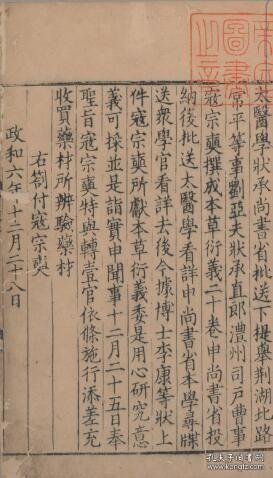 太醫學狀承尚書省批送下提舉荊湖北路
常平等事劉亞夫狀承直郎澧州司戶曹事
寇宗奭撰成本草衍義二十卷申尚書省投
納後批送太醫學看詳申尚書省本學尋牒
送眾學官看詳去後今據博士李康等狀上
件寇宗奭所獻本草衍義委是用心研究意
義可採並是詣實申聞事十二月二十五日奉
聖旨寇宗奭特與轉壹官依條施行添差充
收買藥材所辨驗藥材
右劄付寇宗奭
政和六年十二月二十八日
圖書
之
孔夫子旧书网